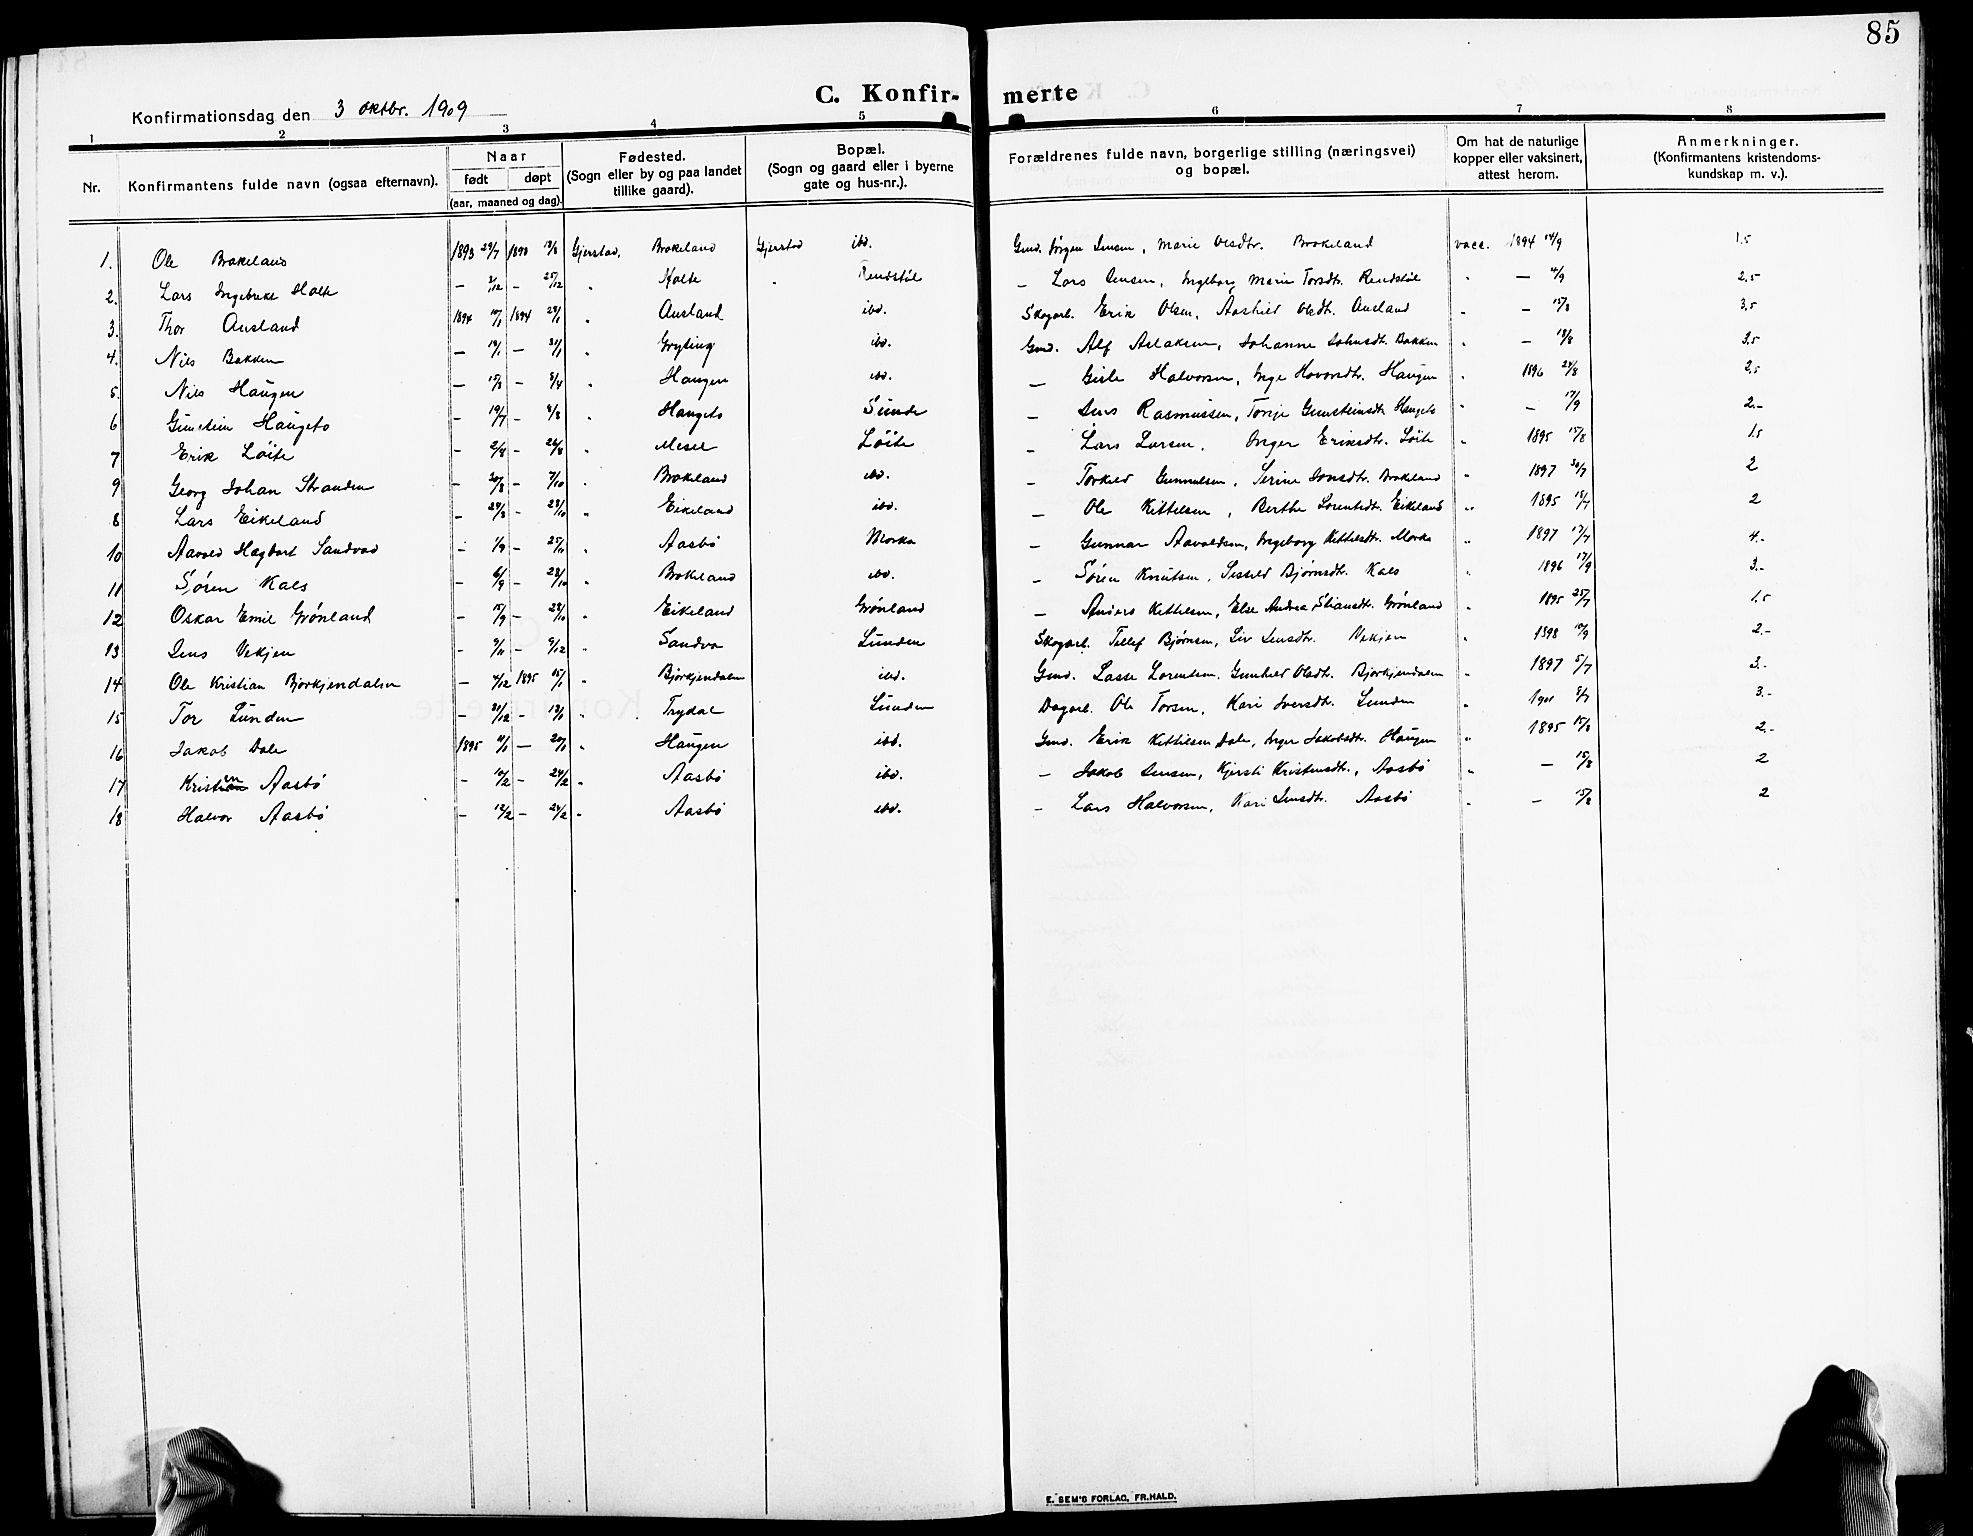 85
C. Konfir- merte
Konfirmationsdag den 3 oktbr. 1909
1 2 3 4 5 6 7 8
Nr. Konfirmantens fulde navn (ogsaa efternavn). Naar født døpt (aar, maaned og dag). Fødested. (Sogn eller by og paa landet tillike gaard). Bopæl. (Sogn og gaard eller i byerne gate og hus-nr.). Forældrenes fulde navn, borgerlige stilling (næringsvei) og bopæl. Om hat de naturlige kopper eller vaksinert, attest herom. Anmerkninger. (Konfirmantens kristendoms-kundskap m. v.).
1. Ole Brokeland 1893 29/7 1893 13/8 Gjerstad, Brokeland Gjerstad ibd. Gmd. Jørgen Jensen, Marie Olsdtr. Brokeland vacc. 1894 14/9 1.5
2. Lars Ingebrekt Holte – 2/12 – 25/12 " Holte " Rendstøl – Lars Jensen, Ingeborg Marie Torsdtr. Rendstøl " – 4/9 2,5
3. Thor Ausland 1894 10/1 1894 28/1 " Ausland ibd. Skogarb. Erik Olsen, Aashild Olsdtr. Ausland " – 15/8 3,5
4. Nils Bakken – 19/1 – 31/1 " Gryting ibd. Gmd. Alf Aslaksen, Johanne Johnsdtr. Bakken " – 18/8 3.5
5. Nils Haugen – 15/3 – 8/4 " Haugen ibd. – Gisle Halvorsen, Inge Hovorsdtr. Haugen " 1896 24/8 2,5
6 Gunstein Haugeto – 19/7 – 4/8 " Haugeto Sunde – Jens Rasmussen, Torije Gunsteinsdtr. Haugeto " – 17/9 2.–
7 Erik Løite – 2/8 – 26/8 " Mesel Løite – Lars Larsen, Inger Eriksdtr. Løite " 1895 15/8 1.5
9 Georg Johan Stranden – 20/8 – 7/10 " Brokeland ibd. – Torkild Gunnulsen, Serine Jonsdtr. Brokeland " 1897 30/7 2
8 Lars Eikeland – 24/8 – 28/10 " Eikeland ibd. – Ole Kittelsen, Berthe Lorentsdt. Eikeland " 1895 15/7 2
10 Aavald Hagbart Sandvad – 1/9 – 25/11 " Aasbø Morka – Gunnar Aavaldsen, Ingeborg Kittilsdtr. Morka " 1897 17/7 4.–
11 Søren Kals – 6/9 – 28/10 " Brokeland ibd. – Søren Knutsen, Sesseld Bjørnsdtr. Kals " 1896 17/9 3.–
12 Oskar Emil Grønland – 15/9 – 28/10 " Eikeland Grønland – Anders Kittelsen, Else Andrea Stiansdtr. Grønland " 1895 25/7 1.5
13 Jens Vekjen – 9/11 – 9/12 " Sandva Lunden Skogarb. Tellef Bjørnsen, Liv Jensdtr. Vekjen " 1898 10/9 2.–
14 Ole Kristian Bjorkjendalen – 4/12 1895 15/1 " Bjorkjendalen ibd. Gmd. Lasse Lorentsen, Gunhild Olsdtr. Bjorkjendalen " 1897 5/7 3.–
15 Tor Lunden – 21/12 – 13/1 " Trydal Lunden Dagarb. Ole Torsen, Kari Iversdtr. Lunden " 1901 8/7 3.–
16 Jakob Dale 1895 11/1 – 20/1 " Haugen ibd. Gmd. Erik Kittilsen Dale, Inger Jakobsdtr. Haugen " 1895 15/8 2.–
17 Kristen Aasbø – 10/2 – 24/2 " Aasbø ibd. – Jakob Jensen, Kjersti Kristensdtr., Aasbø " – 15/8 2
18 Halvor Aasbø – 12/2 – 24/2 " Aasbø ibd. – Lars Halvorsen, Kari Jensdtr. Aasbø " – 15/8 2
E. SEM'S FORLAG, FR.HALD.